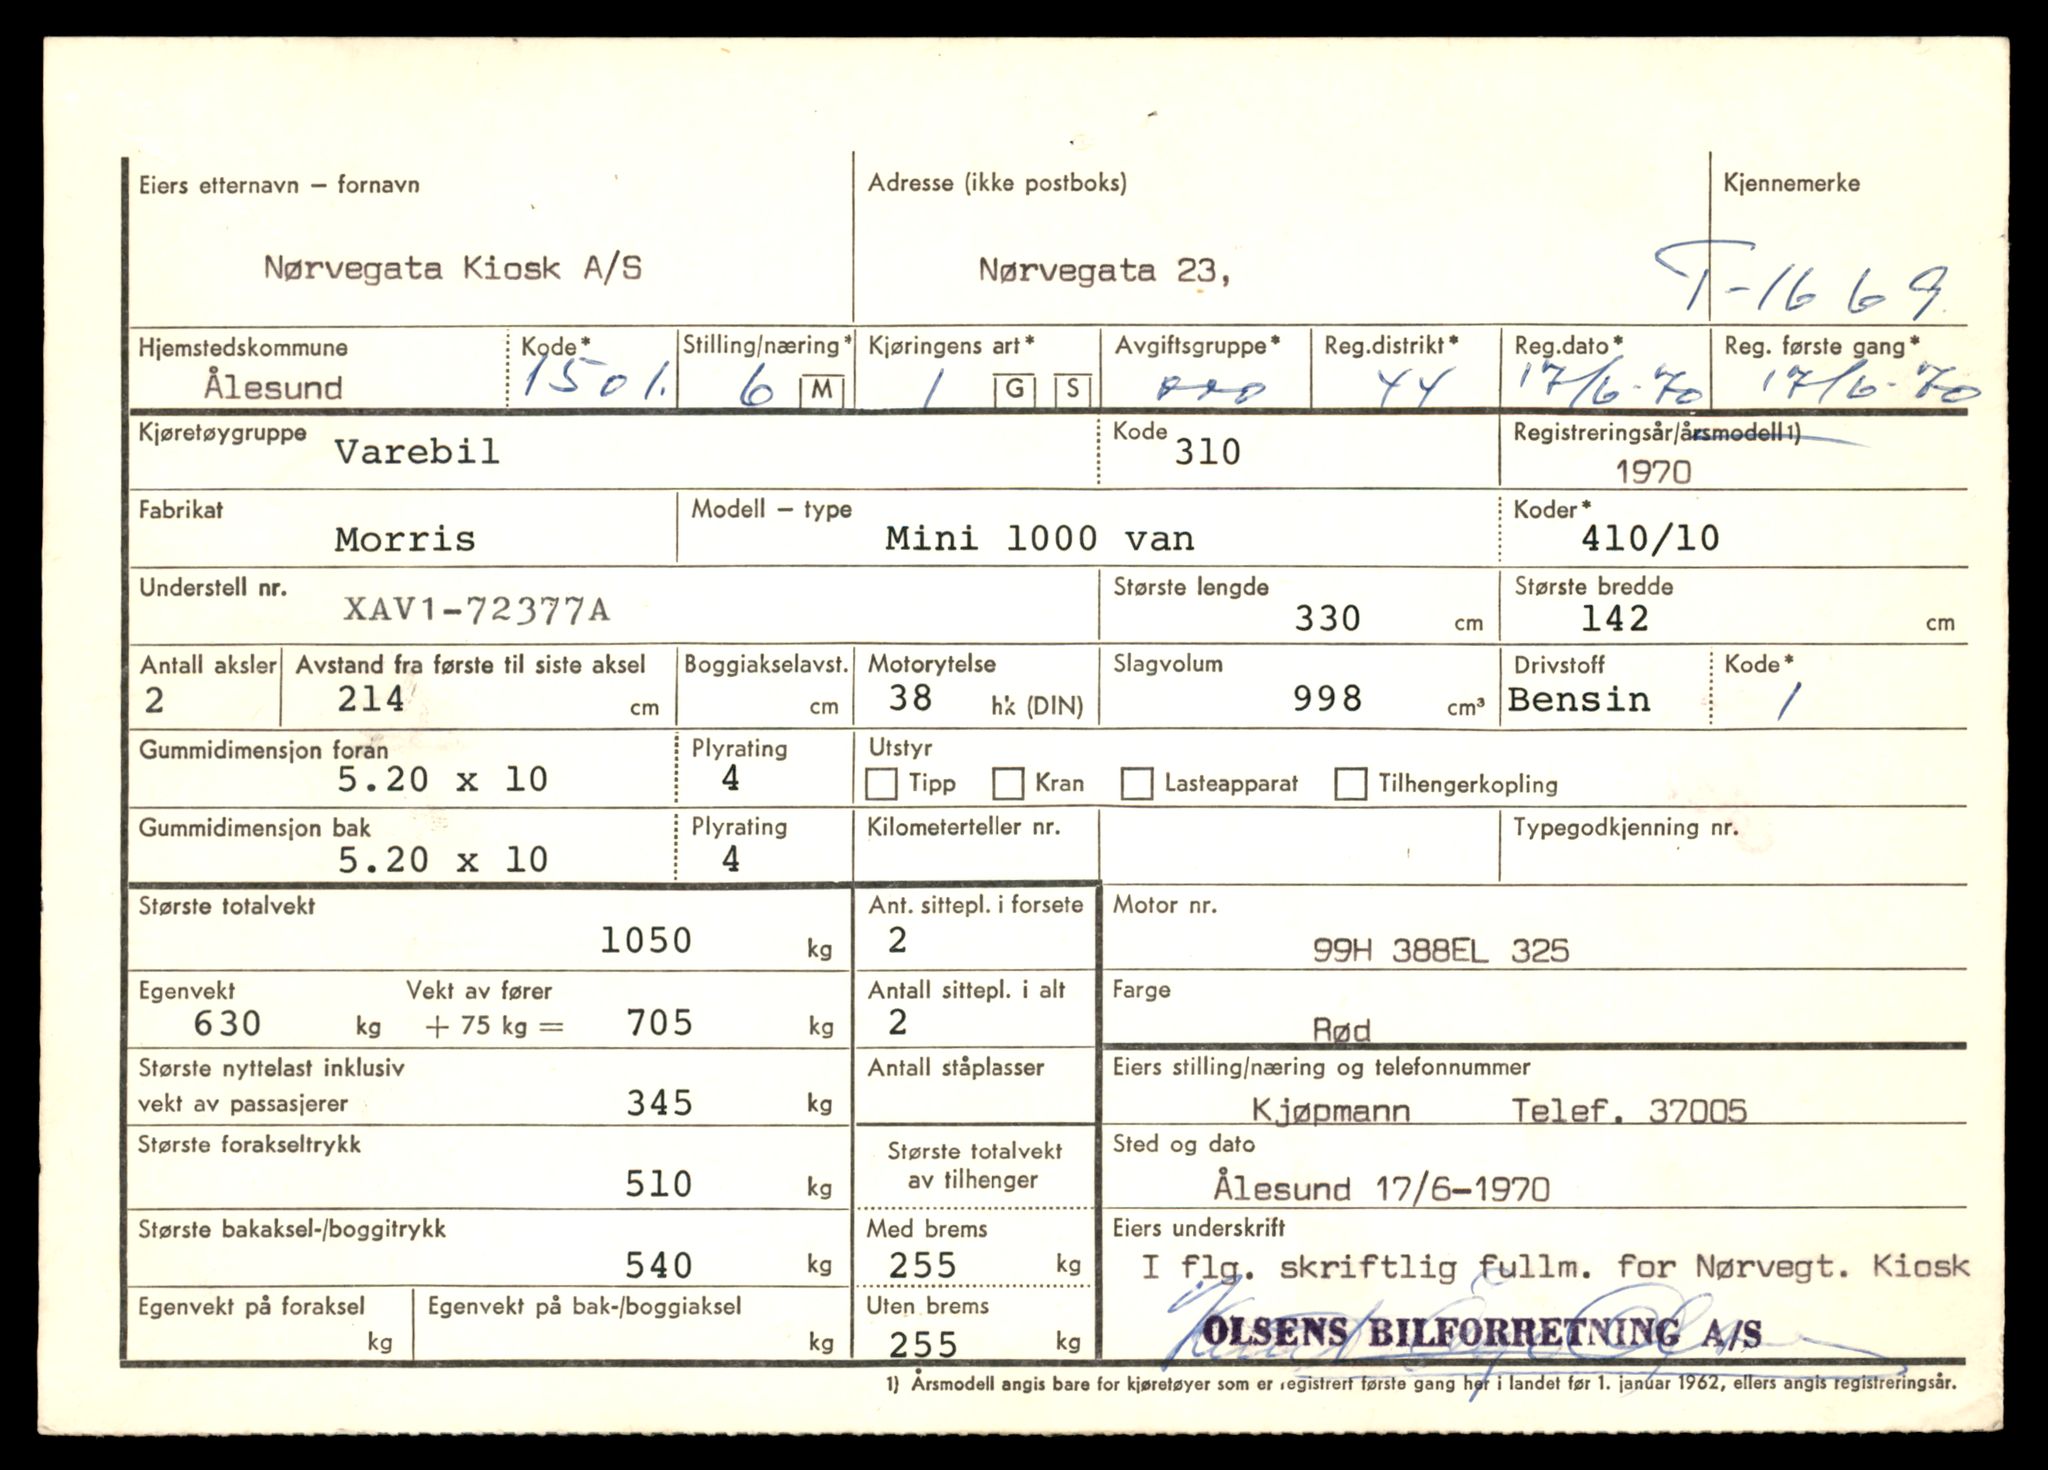 Eiers etternavn – fornavn Adresse (ikke postboks) Kjennemerke
Nørvegata Kiosk A/S Nørvegata 23, T-1669
Hjemstedskommune Kode* Stilling/næring* Kjøringens art* Avgiftsgruppe* Reg.distrikt* Reg.dato* Reg. første gang*
Ålesund 1501. 6 M 1 G S 44 17/6-70 17/6-70
Kjøretøygruppe Varebil Kode 310 Registreringsår/årsmodell1)
1970
Fabrikat Modell – type Koder*
Morris Mini 1000 van 410/10
Understell nr. Største lengde Største bredde
XAV1-72377A 330 cm 142 cm
Antall aksler Avstand fra første til siste aksel Boggiakselavst. Motorytelse Slagvolum Drivstoff Kode*
2 214 cm cm 38 hk (DIN) 998 cm³ Bensin 1
Gummidimensjon foran Plyrating Utstyr
5.20 x 10 4 Tipp Kran Lasteapparat Tilhengerkopling
Gummidimensjon bak Plyrating Kilometerteller nr. Typegodkjenning nr.
5.20 x 10 4
Største totalvekt Ant. sittepl. i forsete Motor nr.
1050 kg 2 99H 388EL 325
Egenvekt Vekt av fører Antall sittepl. i alt Farge
630 kg + 75 kg = 705 kg 2 Rød
Største nyttelast inklusiv Antall ståplasser Eiers stilling/næring og telefonnummer
vekt av passasjerer 345 kg Kjøpmann Telef. 37005
Største forakseltrykk Største totalvekt Sted og dato
510 kg av tilhenger Ålesund 17/6-1970
Største bakaksel-/boggitrykk Med brems Eiers underskrift
540 kg 255 kg I flg. skriftlig fullm. for Nørvegt. Kiosk
Egenvekt på foraksel Egenvekt på bak-/boggiaksel Uten brems
kg kg 255 kg OLSENS BILFORRETNING A/S
1) Årsmodell angis bare for kjøretøyer som er registrert første gang her i landet før 1. januar 1962, ellers angis registreringsår.